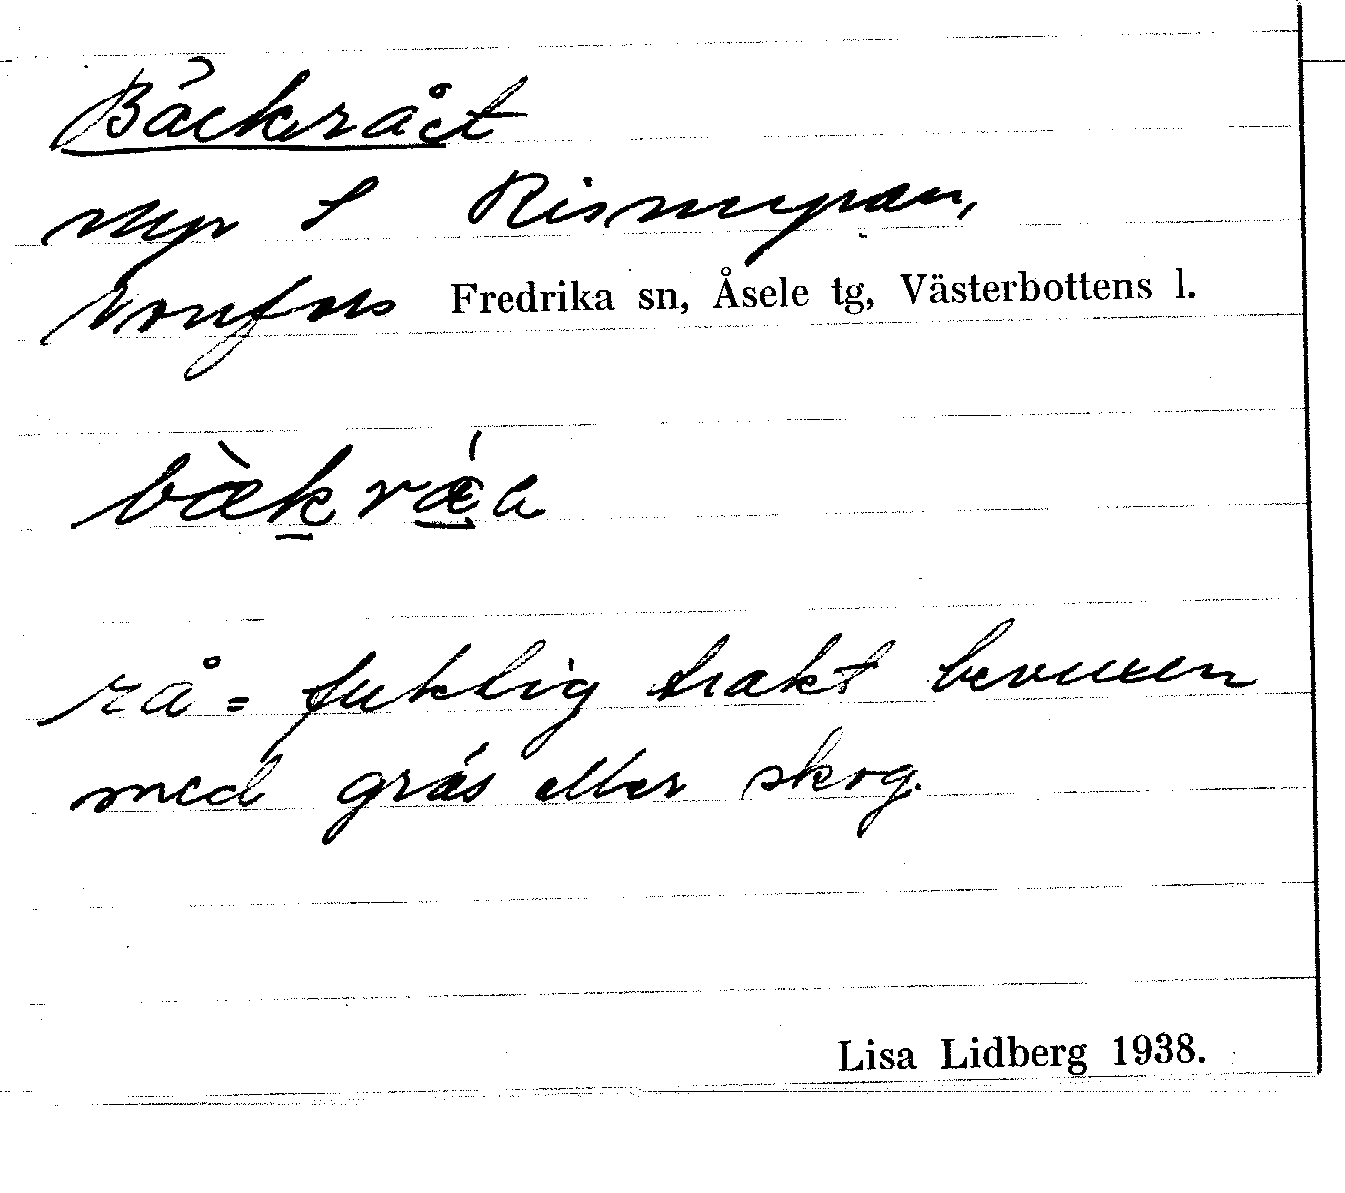 Bäckrået
Myr S Rismyran,
Fredrika sn, Åsele tg, Västerbottens l.
bæ̀krǽa
rå = fuktig trakt bevuxen
med gräs eller skog.
Lisa Lidberg 1938.